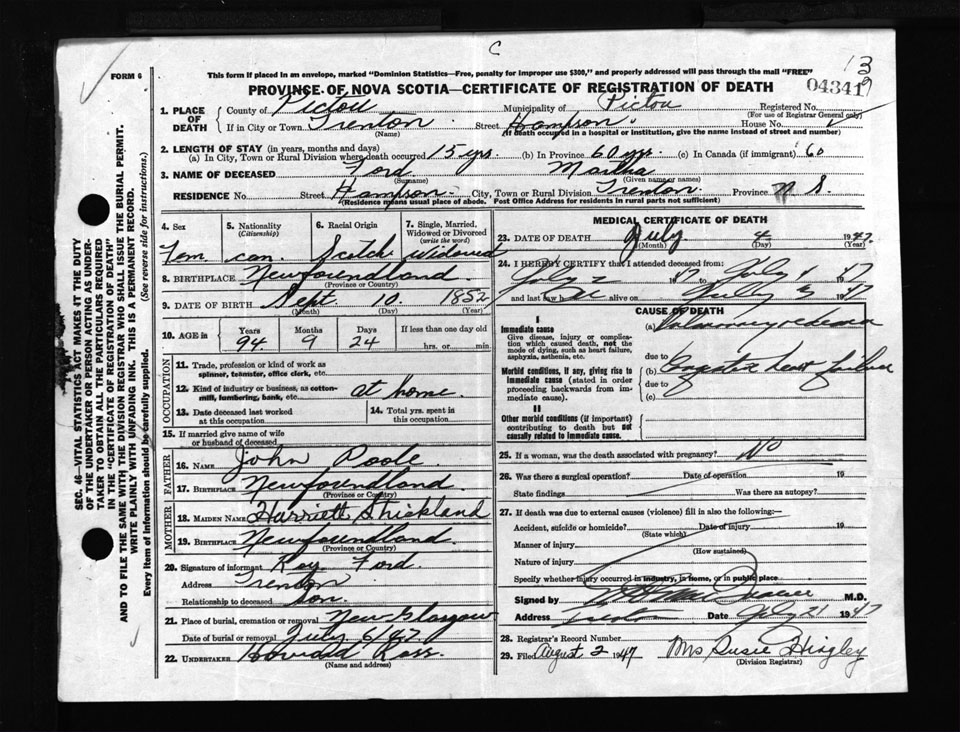 C
13
FORM 6
This form if placed in an envelope, marked "Dominion Statistics—Free, penalty for improper use $300," and properly addressed will pass through the mail "FREE"
PROVINCE OF NOVA SCOTIA—CERTIFICATE OF REGISTRATION OF DEATH
04341
1. PLACE OF DEATH County of Pictou Municipality of Pictou Registered No.
(For use of Registrar General only)
If in City or Town Trenton Street Hampson House No.
(Name) (If death occurred in a hospital or institution, give the name instead of street and number)
2. LENGTH OF STAY (in years, months and days)
(a) In City, Town or Rural Division where death occurred 15 yrs. (b) In Province 60 yrs. (c) In Canada (if immigrant) 60
3. NAME OF DECEASED Ford Martha
(Surname) (Given name or names)
RESIDENCE No. Street Hampson City, Town or Rural Division Trenton Province N.S.
(Residence means usual place of abode. Post Office Address for residents in rural parts not sufficient)
4. Sex 5. Nationality (Citizenship) 6. Racial Origin 7. Single, Married, Widowed or Divorced (write the word)
Fem can. Scotch Widowed
8. BIRTHPLACE Newfoundland
(Province or Country)
9. DATE OF BIRTH Sept. 10 1852
(Month) (Day) (Year)
10. AGE in Years Months Days If less than one day old
94 9 24 hrs. or min.
OCCUPATION
11. Trade, profession or kind of work as spinner, teamster, office clerk, etc.
12. Kind of industry or business, as cotton-mill, lumbering, bank, etc. at home.
13. Date deceased last worked at this occupation
14. Total yrs. spent in this occupation
15. If married give name of wife or husband of deceased
FATHER
16. NAME John Poole
17. BIRTHPLACE Newfoundland
(Province or Country)
MOTHER
18. MAIDEN NAME Harriett Strickland
19. BIRTHPLACE Newfoundland
(Province or Country)
20. Signature of informant Roy Ford.
Address Trenton
Relationship to deceased son.
21. Place of burial, cremation or removal New Glasgow
Date of burial or removal July 6/47
22. UNDERTAKER Howard Ross.
(Name and address)
MEDICAL CERTIFICATE OF DEATH
23. DATE OF DEATH July 4 1947
(Month) (Day) (Year)
24. I HEREBY CERTIFY that I attended deceased from:
July 2 47 July 47
and last saw h alive on July 3 1947
CAUSE OF DEATH
I
Immediate cause (a) Pulmonary edema
Give disease, injury or complication which caused death, not the mode of dying, such as heart failure, asphyxia, asthenia, etc.
due to
Morbid conditions, if any, giving rise to immediate cause (stated in order proceeding backwards from immediate cause). (b) Congestive heart failure
due to
(c)
II
Other morbid conditions (if important) contributing to death but not causally related to immediate cause.
25. If a woman, was the death associated with pregnancy? No
26. Was there a surgical operation? Date of operation 19
State findings Was there an autopsy?
27. If death was due to external causes (violence) fill in also the following:
Accident, suicide or homicide? Date of injury 19
(State which)
Manner of injury
(How sustained)
Nature of injury
Specify whether injury occurred in industry, in home, or in public place
Signed by M.D.
Address Trenton Date July 21 1947
28. Registrar's Record Number
29. Filed August 2 1947 Mrs Susie Hingley
(Division Registrar)
SEC. 46—VITAL STATISTICS ACT MAKES IT THE DUTY
OF THE UNDERTAKER OR PERSON ACTING AS UNDER-
TAKER TO OBTAIN ALL THE PARTICULARS REQUIRED
IN THE "CERTIFICATE OF REGISTRATION OF DEATH"
AND TO FILE THE SAME WITH THE DIVISION REGISTRAR WHO SHALL ISSUE THE BURIAL PERMIT.
WRITE PLAINLY WITH UNFADING INK. THIS IS A PERMANENT RECORD.
Every item of Information should be carefully supplied. (See reverse side for instructions.)